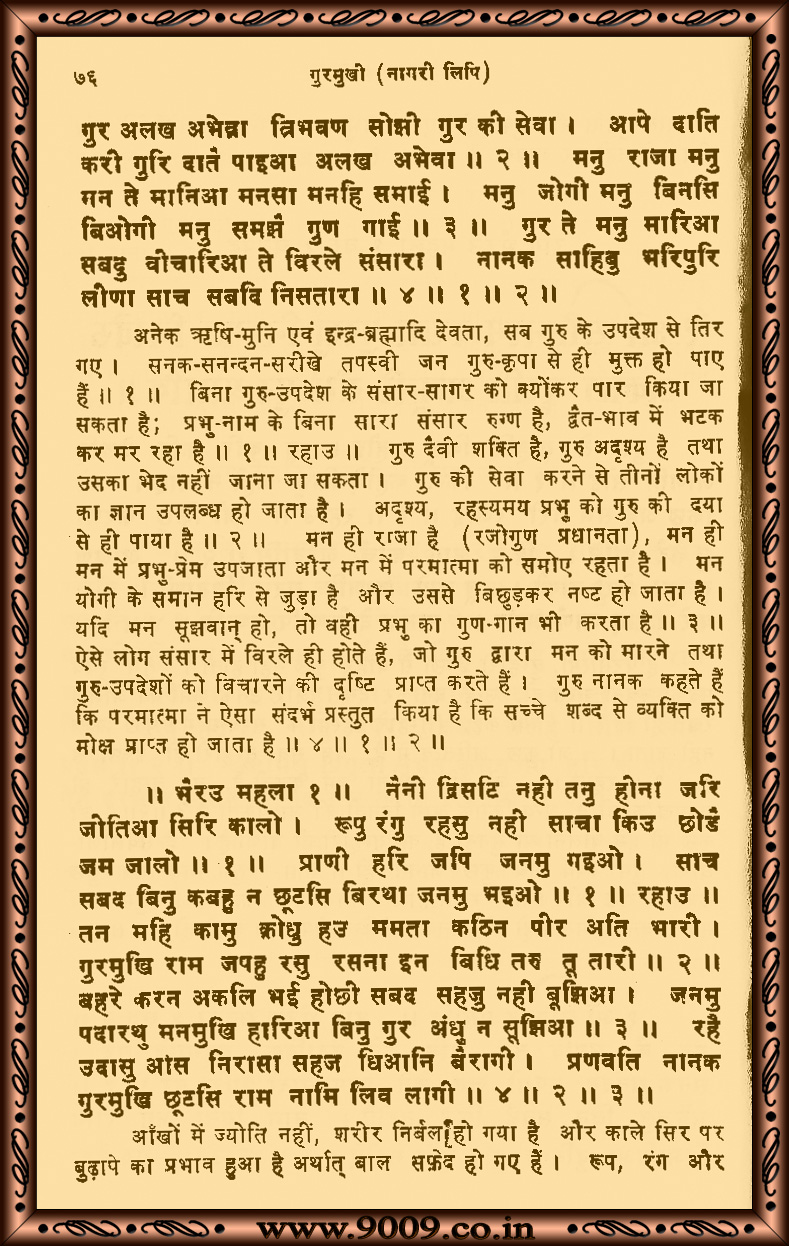 ७६ गुरमुखी (नागरी लिपि)
गुर अलख अभेवा त्रिभवण सोझी गुर की सेवा । आपे दाति
करी गुरि दातै पाइआ अलख अभेवा ॥ २ ॥ मनु राजा मनु
मन ते मानिआ मनसा मनहि समाई । मनु जोगी मनु बिनसि
बिओगी मनु समझै गुण गाई ॥ ३ ॥ गुर ते मनु मारिआ
सबदु वीचारिआ ते विरले संसारा । नानक साहिबु भरिपुरि
लीणा साच सबदि निसतारा ॥ ४ ॥ १ ॥ २ ॥
अनेक ऋषि-मुनि एवं इन्द्र-ब्रह्मादि देवता, सब गुरु के उपदेश से तिर
गए । सनक-सनन्दन-सरीखे तपस्वी जन गुरु-कृपा से ही मुक्त हो पाए
हैं ॥ १ ॥ बिना गुरु-उपदेश के संसार-सागर को क्योंकर पार किया जा
सकता है; प्रभु-नाम के बिना सारा संसार रुग्ण है, द्वैत-भाव में भटक
कर मर रहा है ॥ १ ॥ रहाउ ॥ गुरु दैवी शक्ति है, गुरु अदृश्य है तथा
उसका भेद नहीं जाना जा सकता । गुरु की सेवा करने से तीनों लोकों
का ज्ञान उपलब्ध हो जाता है । अदृश्य, रहस्यमय प्रभु को गुरु की दया
से ही पाया है ॥ २ ॥ मन ही राजा है (रजोगुण प्रधानता), मन ही
मन में प्रभु-प्रेम उपजाता और मन में परमात्मा को समोए रहता है । मन
योगी के समान हरि से जुड़ा है और उससे बिछुड़कर नष्ट हो जाता है ।
यदि मन सूझवान् हो, तो वही प्रभु का गुण-गान भी करता है ॥ ३ ॥
ऐसे लोग संसार में विरले ही होते हैं, जो गुरु द्वारा मन को मारने तथा
गुरु-उपदेशों को विचारने की दृष्टि प्राप्त करते हैं । गुरु नानक कहते हैं
कि परमात्मा ने ऐसा संदर्भ प्रस्तुत किया है कि सच्चे शब्द से व्यक्ति को
मोक्ष प्राप्त हो जाता है ॥ ४ ॥ १ ॥ २ ॥
॥ भैरउ महला १ ॥ नैनी द्रिसटि नही तनु हीना जरि
जीतिआ सिरि कालो । रूपु रंगु रहसु नही साचा किउ छोडै
जम जालो ॥ १ ॥ प्राणी हरि जपि जनमु गइओ । साच
सबद बिनु कबहु न छूटसि बिरथा जनमु भइओ ॥ १ ॥ रहाउ ॥
तन महि कामु क्रोधु हउ ममता कठिन पीर अति भारी ।
गुरमुखि राम जपहु रसु रसना इन बिधि तरु तू तारी ॥ २ ॥
बहरे करन अकलि भई होछी सबद सहजु नही बूझिआ । जनमु
पदारथु मनमुखि हारिआ बिनु गुर अंधु न सूझिआ ॥ ३ ॥ रहै
उदासु आस निरासा सहज धिआनि बैरागी । प्रणवति नानक
गुरमुखि छूटसि राम नामि लिव लागी ॥ ४ ॥ २ ॥ ३ ॥
आँखों में ज्योति नहीं, शरीर निर्बल हो गया है और काले सिर पर
बुढ़ापे का प्रभाव हुआ है अर्थात् बाल सफ़ेद हो गए हैं । रूप, रंग और
www.9009.co.in